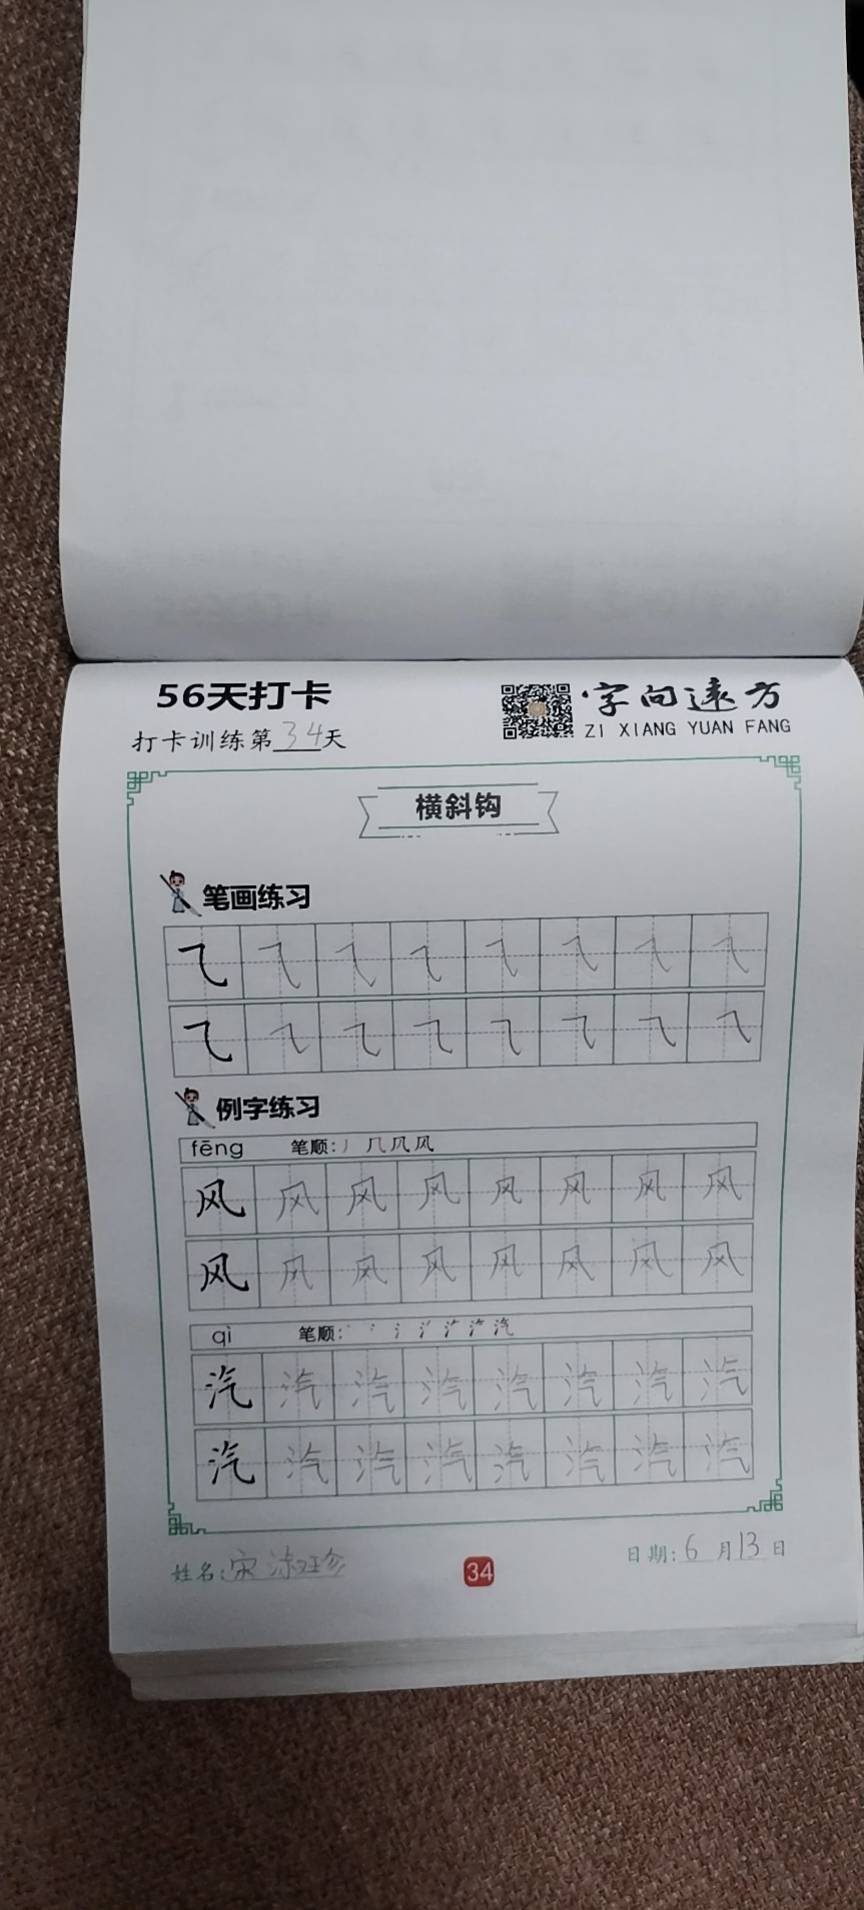 56天打卡
字向远方
ZI XIANG YUAN FANG
打卡训练第34天
横斜钩
笔画练习
⺄ ⺄ ⺄ ⺄ ⺄ ⺄ ⺄ ⺄
⺄ ⺄ ⺄ ⺄ ⺄ ⺄ ⺄ ⺄
例字练习
fēng 笔顺:丿 几 凤 风
风 风 风 风 风 风 风 风
风 风 风 风 风 风 风 风
qì 笔顺:
汽 汽 汽 汽 汽 汽 汽 汽
汽 汽 汽 汽 汽 汽 汽 汽
姓名:宋淑珍
34
日期:6月13日